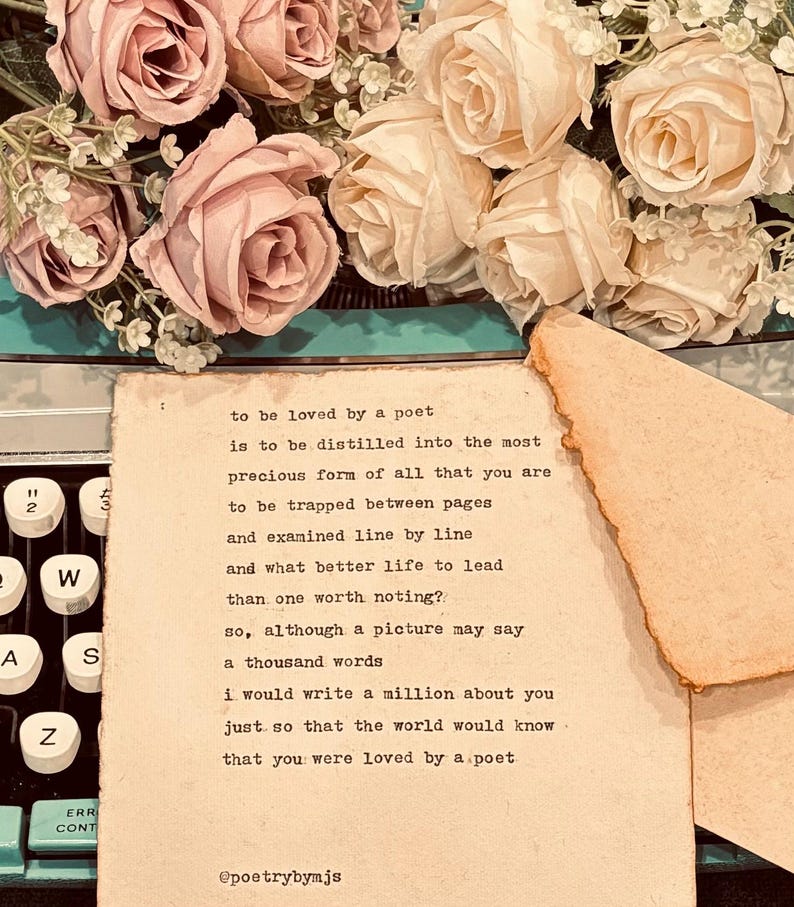 to be loved by a poet
is to be distilled into the most
precious form of all that you are
to be trapped between pages
and examined line by line
and what better life to lead
than one worth noting?
so, although a picture may say
a thousand words
i would write a million about you
just so that the world would know
that you were loved by a poet
@poetrybymjs
"
2
#
3
Q
W
A
S
Z
ERR
CONT